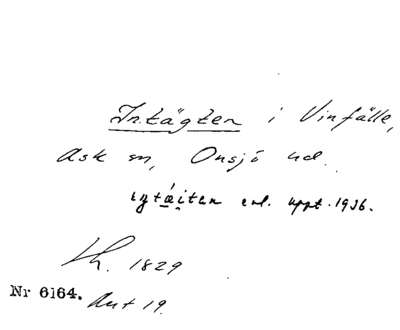 Intägten i Vinfälle,
Ask sn, Onsjö hd.
enl. uppt. 1936.
Lh. 1829
Nr 6164. Ant 19.